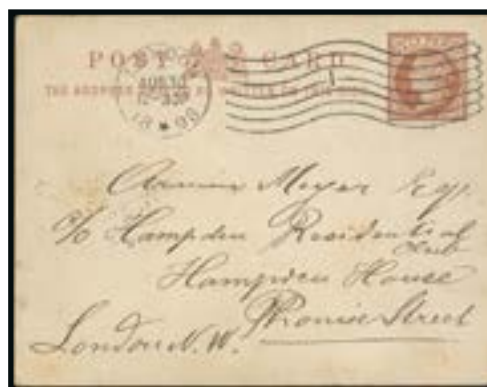 POST CARD
THE ADDRESS
AUG 30
18 98
Meyer Esq.
c/o Hampden Residential
Club
Hampden House
Phœnix Street
London N.W.